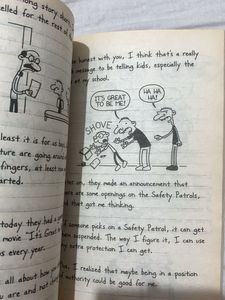 ong story shor
elled for the rest o
honest with you, I think that's a really
message to be telling kids, especially the
at my school.
IT'S GREAT
TO BE ME!
HA HA
HA!
SHOVE
least it is for us bo
cture are going aroun
fingers, at least no
arted.
on, they made an announcement that
are some openings on the Safety Patrols,
that got me thinking.
today they had a
movie "It's Great
s every year.
someone picks on a Safety Patrol, it can get
suspended. The way I figure it, I can use
extra protection I can get.
all about how
you are and not
I realized that maybe being in a position
authority could be good for me.